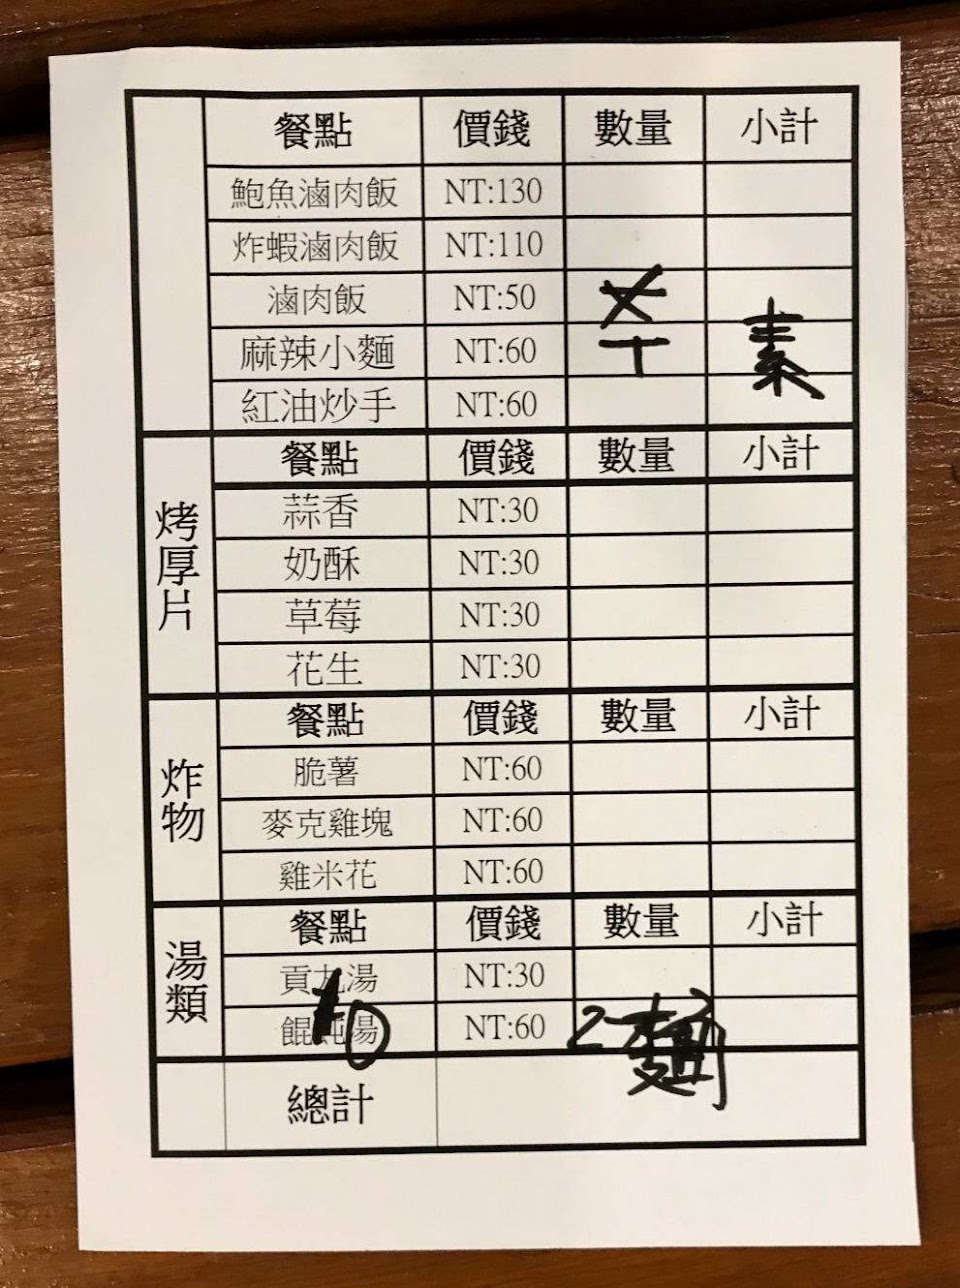 餐點 價錢 數量 小計
鮑魚滷肉飯 NT:130
炸蝦滷肉飯 NT:110
滷肉飯 NT:50
麻辣小麵 NT:60 素
紅油炒手 NT:60
烤厚片
餐點 價錢 數量 小計
蒜香 NT:30
奶酥 NT:30
草莓 NT:30
花生 NT:30
炸物
餐點 價錢 數量 小計
脆薯 NT:60
麥克雞塊 NT:60
雞米花 NT:60
湯類
餐點 價錢 數量 小計
貢丸湯 NT:30
餛飩湯 NT:60 麵
總計